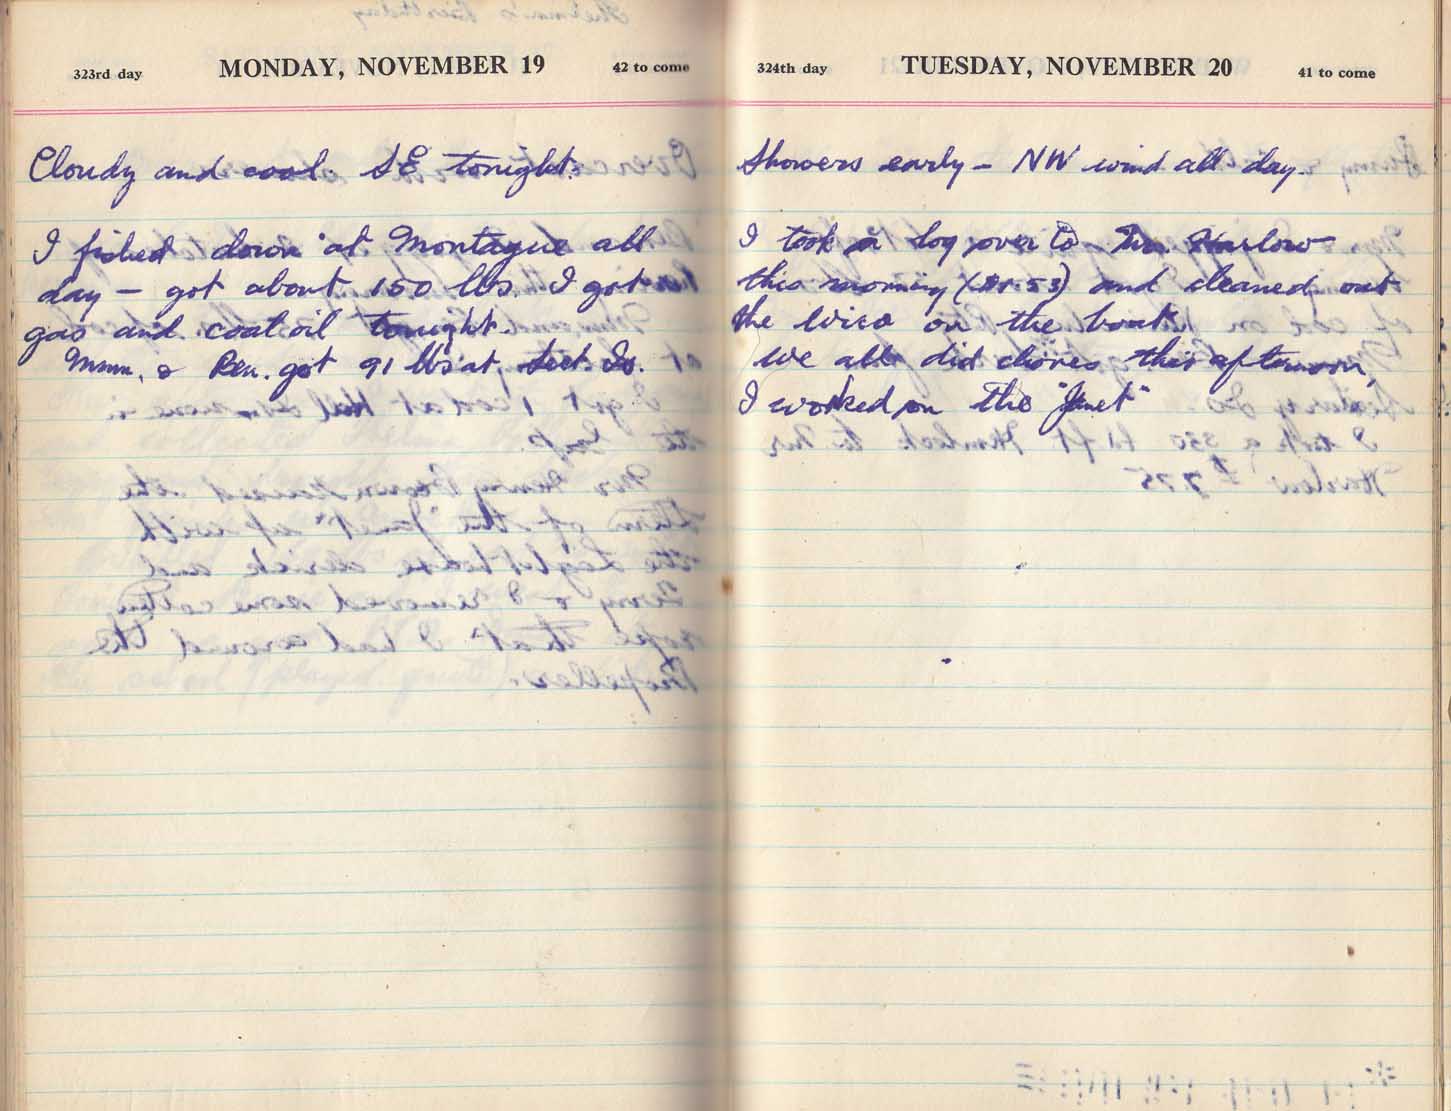 323rd day MONDAY, NOVEMBER 19 42 to come
Cloudy and cool. SE tonight.
I fished down at Montague all
day – got about 150 lbs. I got
gas and coal oil tonight.
Mum. & Ren. got 91 lbs at Sect. Is.
324th day TUESDAY, NOVEMBER 20 41 to come
Showers early – NW wind all day.
I took a log over to Mr. Harlow
this morning ($1.53) and cleaned out
the wire on the boat.
We all did chores this afternoon,
I worked on the "Janet"